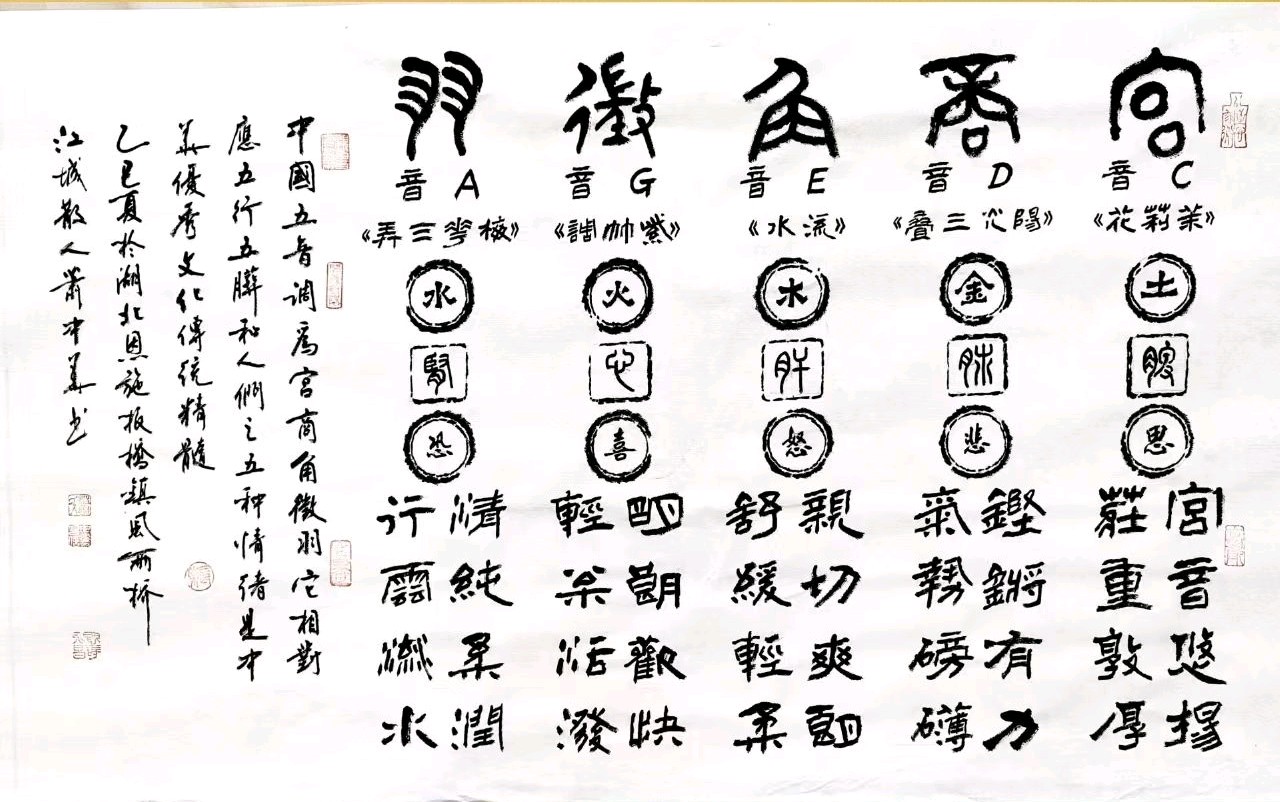 宮
C音
《茉莉花》
土
脾
思
宮音悠揚
莊重敦厚
商
D音
《陽关三叠》
金
肺
悲
鏗鏘有力
氣勢磅礴
角
E音
《流水》
木
肝
怒
親切爽朗
舒緩輕柔
徵
G音
《紫竹調》
火
心
喜
明朗歡快
輕柔活潑
羽
A音
《梅花三弄》
水
腎
恐
清純柔潤
行雲流水
中國五音调為宮商角徵羽它相對
應五行五臟和人們之五种情绪是中
華優秀文化傳统精髓
乙巳夏於湖北恩施板橋鎮風雨桥
江城散人萧中華书